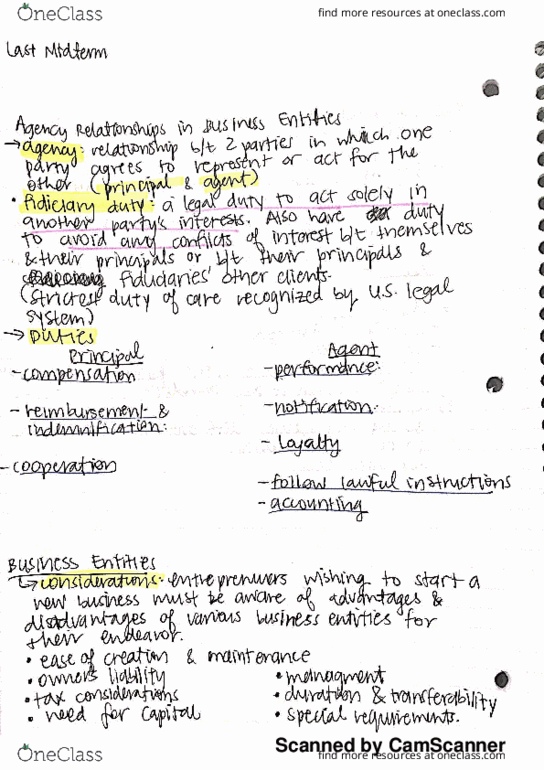 OneClass
find more resources at oneclass.com
Last Midterm
Agency Relationships in Business Entities
→ agency: relationship b/t 2 parties in which one
party agrees to represent or act for the
other (principal & agent)
• fidiciary duty: a legal duty to act solely in
another party's interests. Also have duty
to avoid any conflicts of interest b/t themselves
& their principals or b/t their principals &
fiduciaries' other clients.
(strictest duty of care recognized by U.S. legal
system)
→ Duties
Principal
Agent
- compensation
- performance:
- reimbursement &
indemnification:
- notification:
- Loyalty
- cooperation
- follow lawful instructions
- accounting
Business Entities
↳ considerations: entreprenuers wishing to start a
new business must be aware of advantages &
disadvantages of various business entities for
their endeavor.
• ease of creation & maintenance
• owners liability
• managment
• tax considerations
• duration & transferability
• need for capital
• special requirements.
Scanned by CamScanner
OneClass
find more resources at oneclass.com